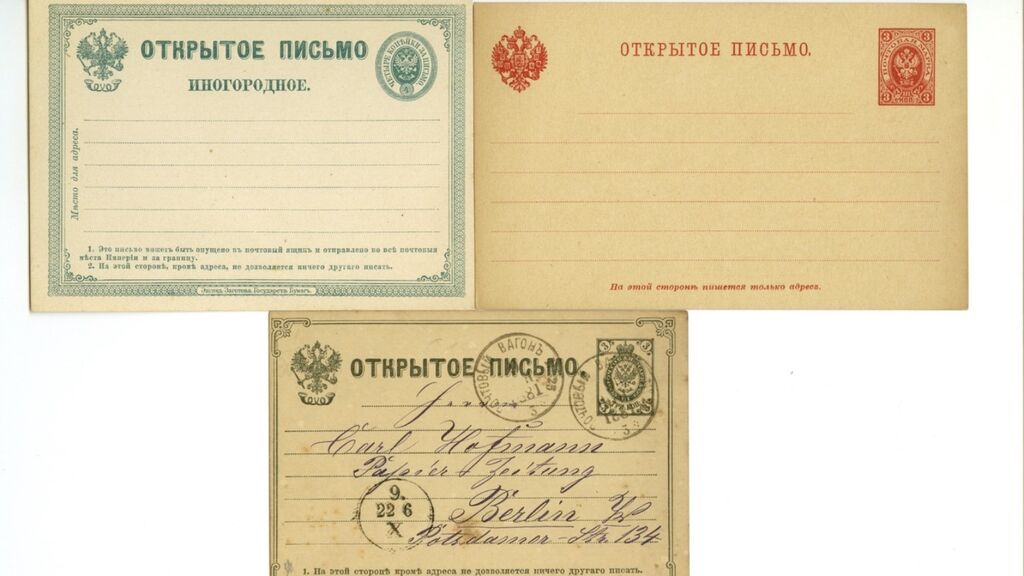 ОТКРЫТОЕ ПИСЬМО
ИНОГОРОДНОЕ.
ЧЕТЫРЕ КОПѢЙКИ ЗА ПИСЬМО
4
Мѣсто для адреса.
1. Это письмо можетъ быть опущено въ почтовый ящикъ и отправлено во всѣ почтовыя
мѣста Имперіи и за границу.
2. На этой сторонѣ, кромѣ адреса, не дозволяется ничего другаго писать.
Экспед. Заготовл. Государств. Бумагъ.
ОТКРЫТОЕ ПИСЬМО.
3 3
3 КОП. 3
На этой сторонѣ пишется только адресъ.
ОТКРЫТОЕ ПИСЬМО.
ПОЧТОВЫЙ ВАГОНЪ
3
ПОЧТОВЫЙ
1881
3
3
Herrn
Carl Hofmann
Papier-Zeitung
Berlin W
Potsdamer-Str. 134
9.
22 6
X
1. На этой сторонѣ кромѣ адреса не дозволяется ничего другаго писать.